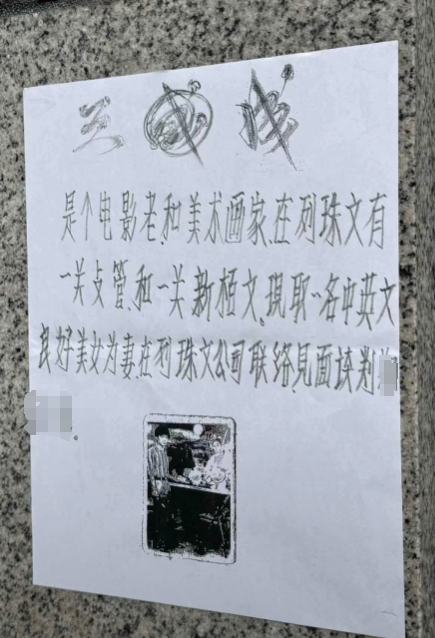 是个电影老和美术画家、在列珠文有
一关攴管、和一关新栢文。现取一名中英文
良好美女为妻、在列珠文公司联络、见面谈判